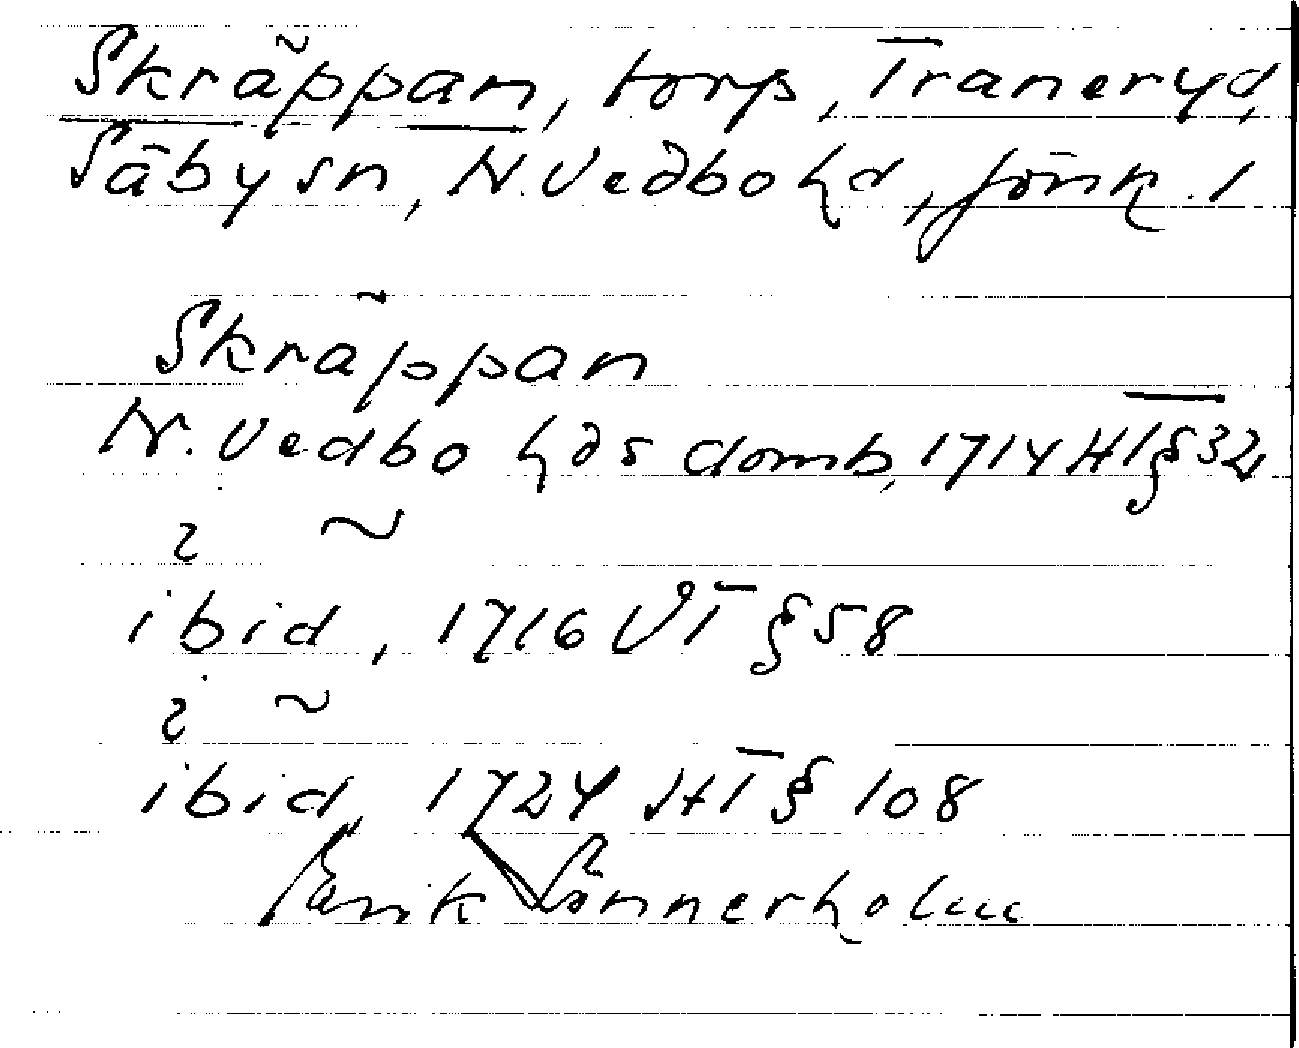 Skräppan, torp, Traneryd,
Säby sn, N. Vedbo hd, Jönk. l
Skräppan
N. Vedbo hds domb, 1714 HT § 32
i ~
ibid, 1716 VT § 58
i ~
ibid, 1724 HT § 108
Erik Lönnerholm